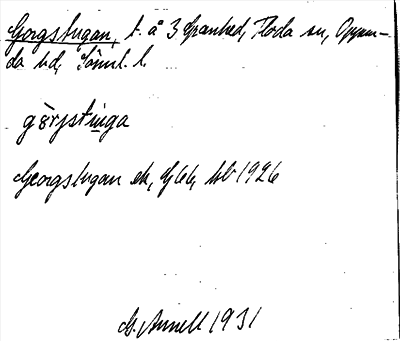 Gorgstugan, t. å 3 Spanhed, Floda sn, Oppun-
da hd, Söml. l.
görjstuga
Georgstugan ek, Gj 66, hb 1926
G. Annell 1931